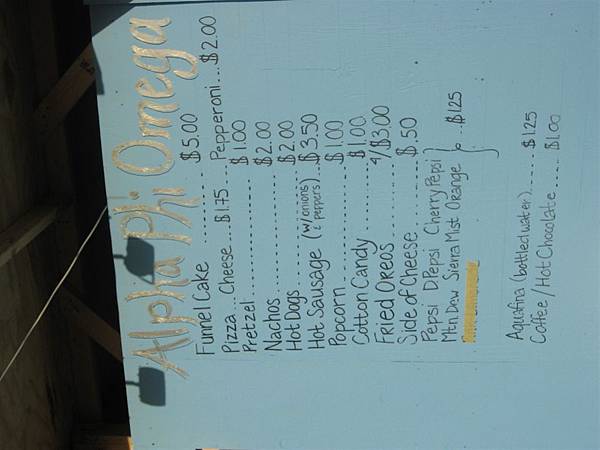 Alpha Phi Omega
Funnel Cake ........ $5.00
Pizza ... Cheese ... $1.75 Pepperoni .... $2.00
Pretzel .................. $1.00
Nachos ................ $2.00
Hot Dogs ............. $2.00
Hot Sausage (w/onions & peppers) ... $3.50
Popcorn .............. $1.00
Cotton Candy ........ $1.00
Fried Oreos ......... 4/$3.00
Side of Cheese ......... $.50
Pepsi D.Pepsi Cherry Pepsi
Mtn Dew Sierra Mist Orange } ... $1.25
Aquafina (bottled water) ..... $1.25
Coffee/Hot Chocolate ....... $1.00